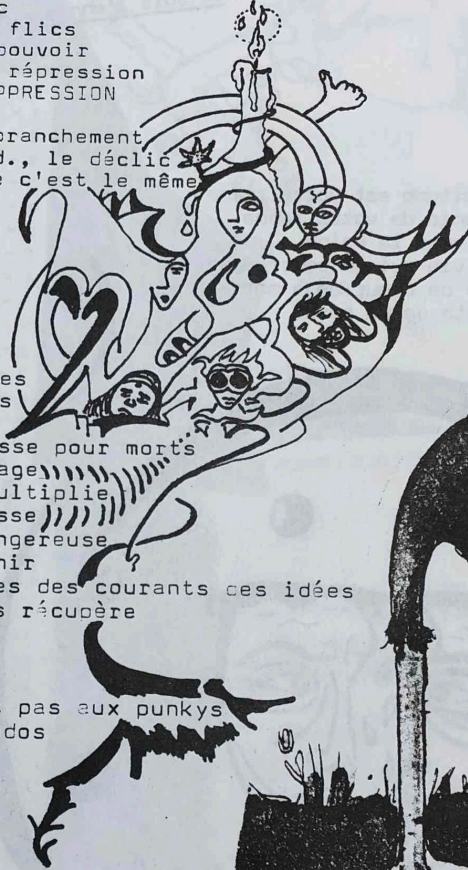 c
flics
pouvoir
répression
PPRESSION
branchement
d., le déclic
e c'est le même
es
s
sse pour morts
age
ultiplie
sse
ngereuse
nir
es des courants ces idées
s récupère
pas aux punkys
dos